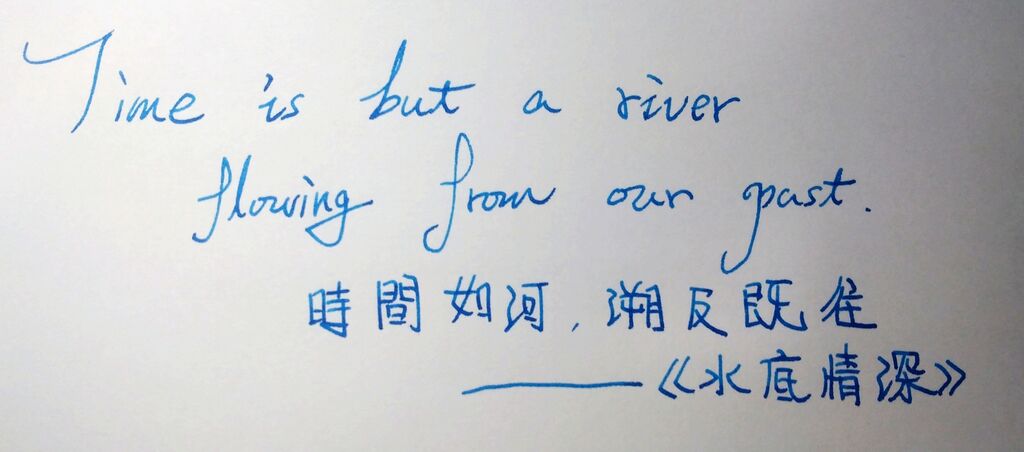 Time is but a river
flowing from our past.
時間如河,溯反既往
——《水底情深》